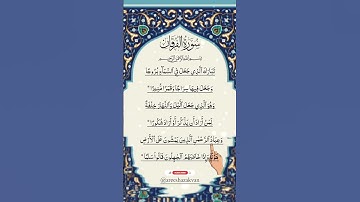 سُورَةُ الْفُرْقَان
بِسْمِ اللهِ الرَّحْمٰنِ الرَّحِيمِ
تَبَارَكَ الَّذِي جَعَلَ فِي السَّمَآءِ بُرُوجًا
وَجَعَلَ فِيهَا سِرَاجًا وَقَمَرًا مُنِيرًا *
وَهُوَ الَّذِي جَعَلَ الَّيْلَ وَالنَّهَارَ خِلْفَةً
لِمَنْ أَرَادَ أَنْ يَذَّكَّرَ أَوْ أَرَادَ شُكُورًا *
وَعِبَادُ الرَّحْمٰنِ الَّذِينَ يَمْشُونَ عَلَى الْأَرْضِ
هَوْنًا وَإِذَا خَاطَبَهُمُ الْجٰهِلُونَ قَالُوا سَلٰمًا *